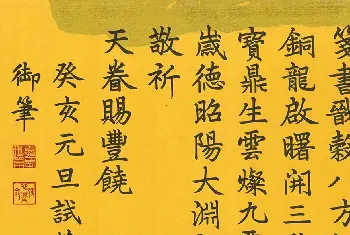 書戩穀八方
銅龍啟曙開三
寶鼎生雲燦九
歲德昭陽大淵
敬祈
天眷賜豐饒
癸亥元旦試
御筆